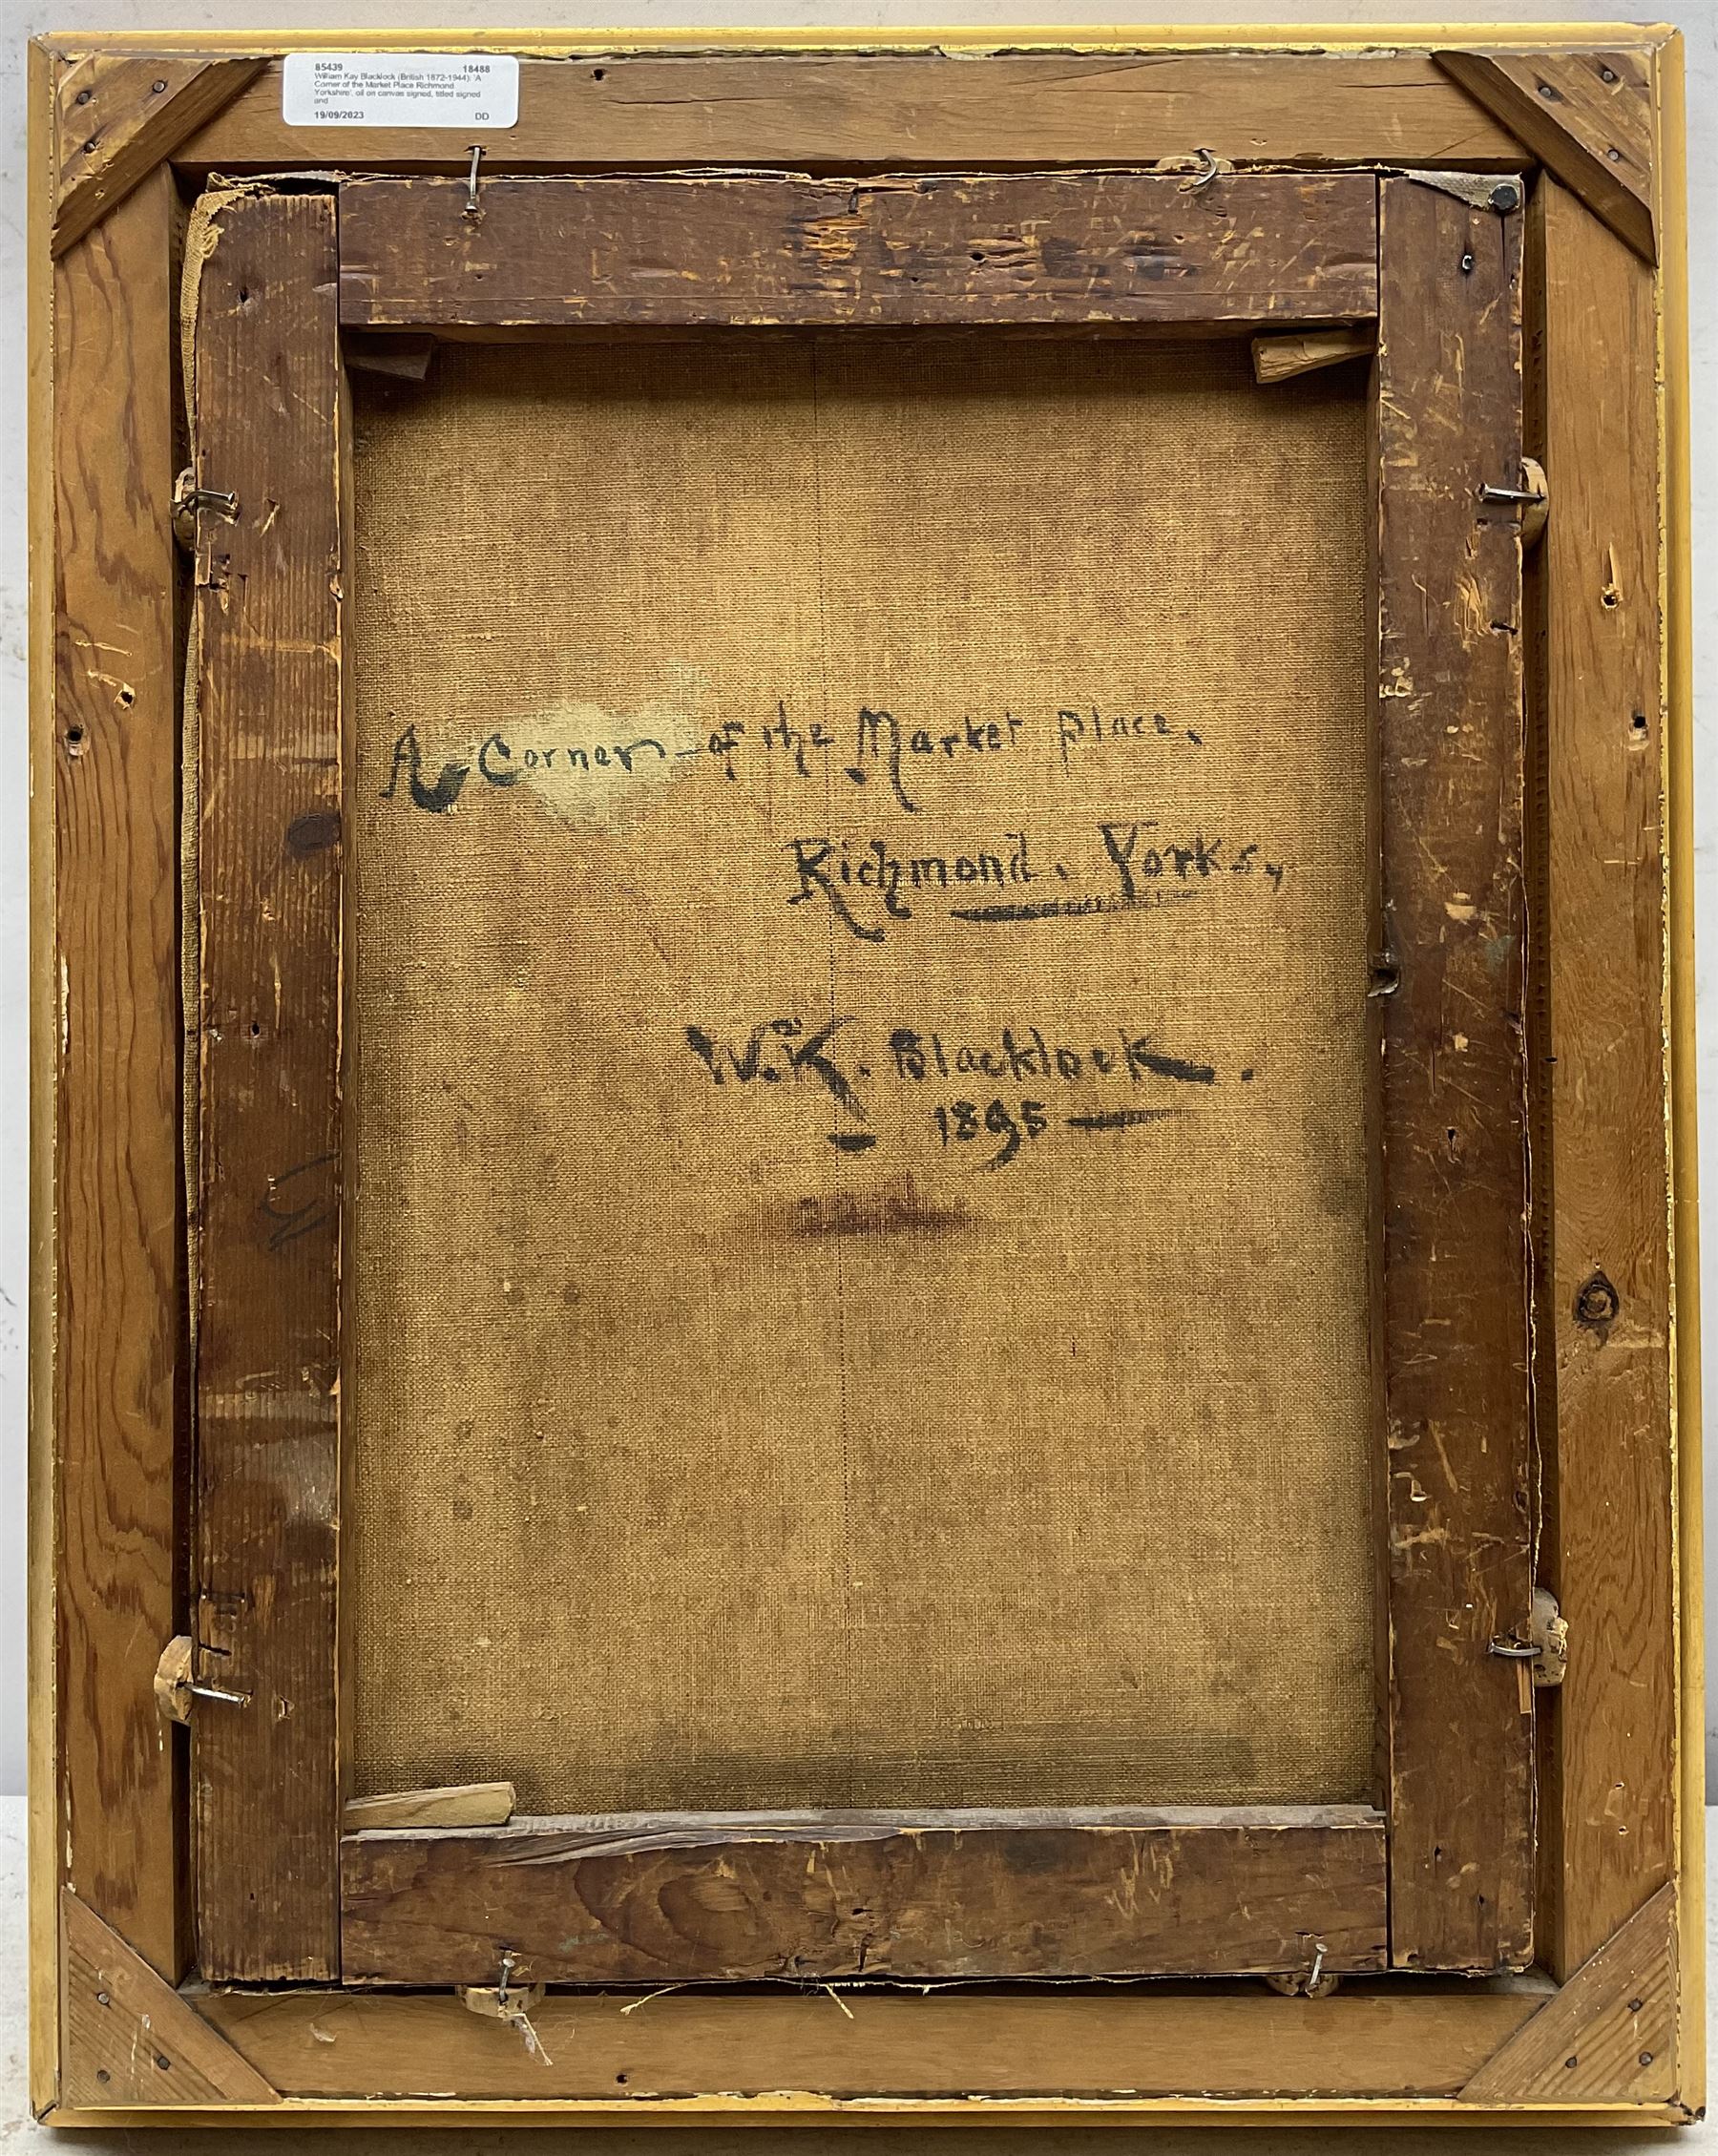 85439 18488
William Kay Blacklock (British 1872-1944): 'A
Corner of the Market Place Richmond
Yorkshire', oil on canvas signed, titled signed
and
19/09/2023 DD
A Corner of the Market Place,
Richmond. Yorks,
W.K. Blacklock.
1895